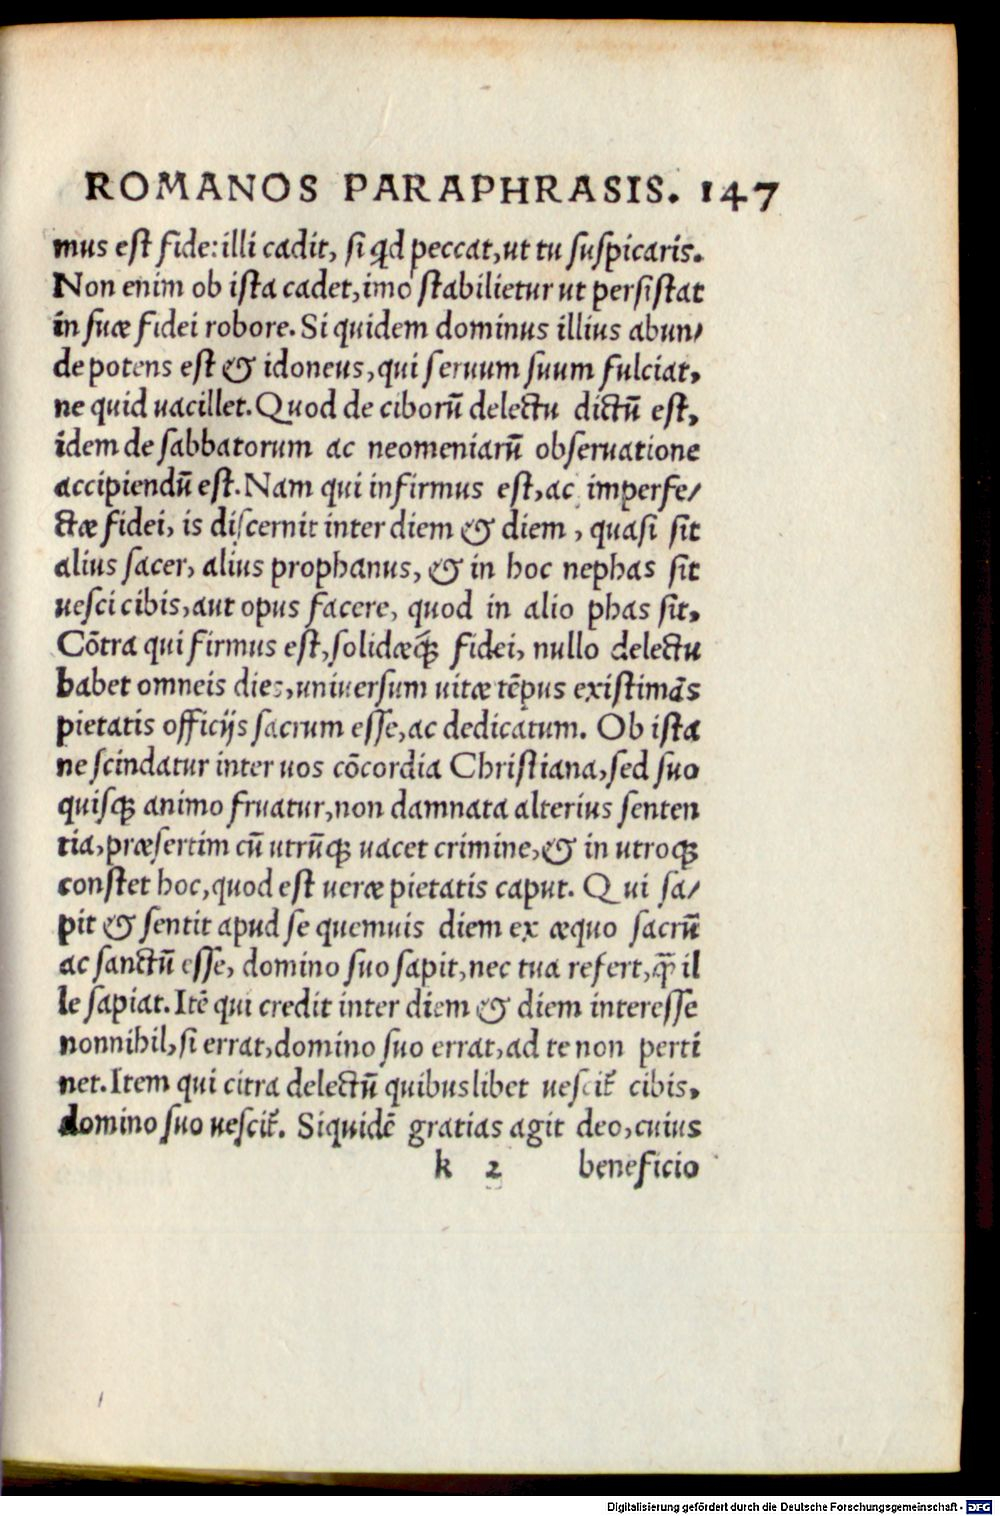 ROMANOS PARAPHRASIS. 147
mus est fide: illi cadit, si qd peccat, ut tu suspicaris.
Non enim ob ista cadet, imo stabilietur ut persistat
in suæ fidei robore. Si quidem dominus illius abun/
de potens est & idoneus, qui seruum suum fulciat,
ne quid uacillet. Quod de ciborū delectu dictū est,
idem de sabbatorum ac neomeniarū obseruatione
accipiendū est. Nam qui infirmus est, ac imperfe/
ctæ fidei, is discernit inter diem & diem, quasi sit
alius sacer, alius prophanus, & in hoc nephas sit
uesci cibis, aut opus facere, quod in alio phas sit,
Cōtra qui firmus est, solidæq̃ꝫ fidei, nullo delectu
habet omneis dies, uniuersum uitæ tēpus existimās
pietatis officijs sacrum esse, ac dedicatum. Ob ista
ne scindatur inter uos cōcordia Christiana, sed suo
quisqꝫ animo fruatur, non damnata alterius senten
tia, præsertim cū utrūqꝫ uacet crimine, & in utroqꝫ
constet hoc, quod est ueræ pietatis caput. Qui sa/
pit & sentit apud se quemuis diem ex æquo sacrū
ac sanctū esse, domino suo sapit, nec tua refert, q̃ il
le sapiat. Itē qui credit inter diem & diem interesse
nonnihil, si errat, domino suo errat, ad te non perti
net. Item qui citra delectū quibuslibet uescit᷑ cibis,
domino suo uescit᷑. Siquidē gratias agit deo, cuius
k 2 beneficio
Digitalisierung gefördert durch die Deutsche Forschungsgemeinschaft - DFG